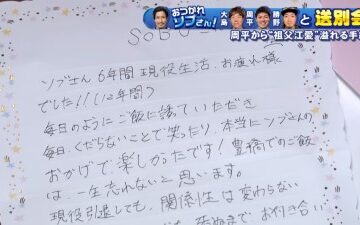 おつかれ
ソブさん!
大島
周平
勝野
と送別会
周平から"祖父江愛"溢れる手
SOBU
ソブさん 6年間 現役生活、お疲れ様
でした!!(12年間)
毎日のようにご飯に誘っていただき
毎日くだらないことで笑ったり、本当にソブさんの
おかげで、楽しかったです!豊橋でのご飯
は一生忘れないと思います。
現役引退しても、関係性は変わらない
死ぬまでお付き合い